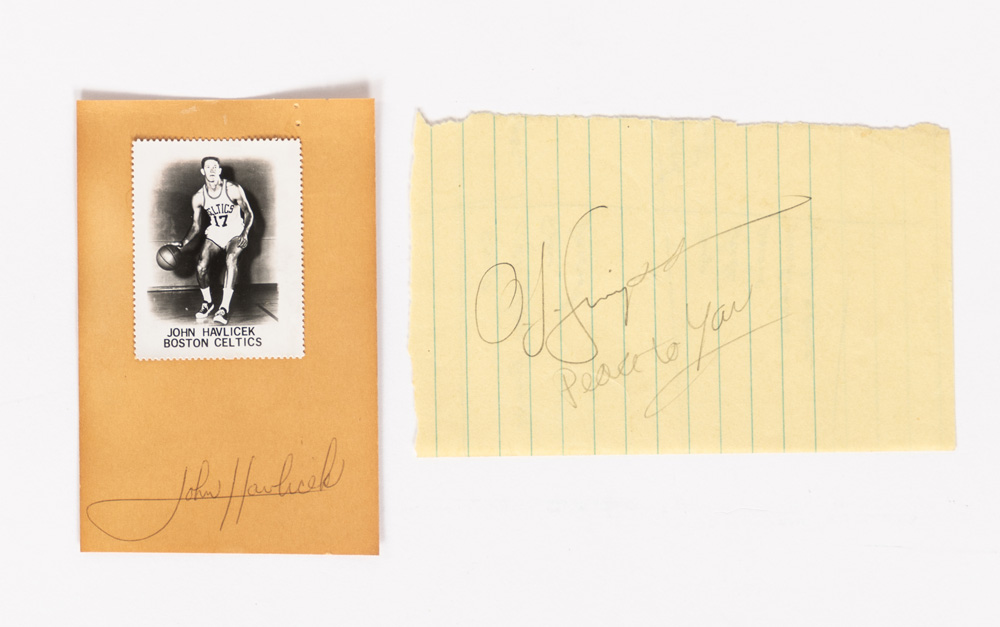 CELTICS
17
JOHN HAVLICEK
BOSTON CELTICS
John Havlicek
O.J. Simpson
Peace to You